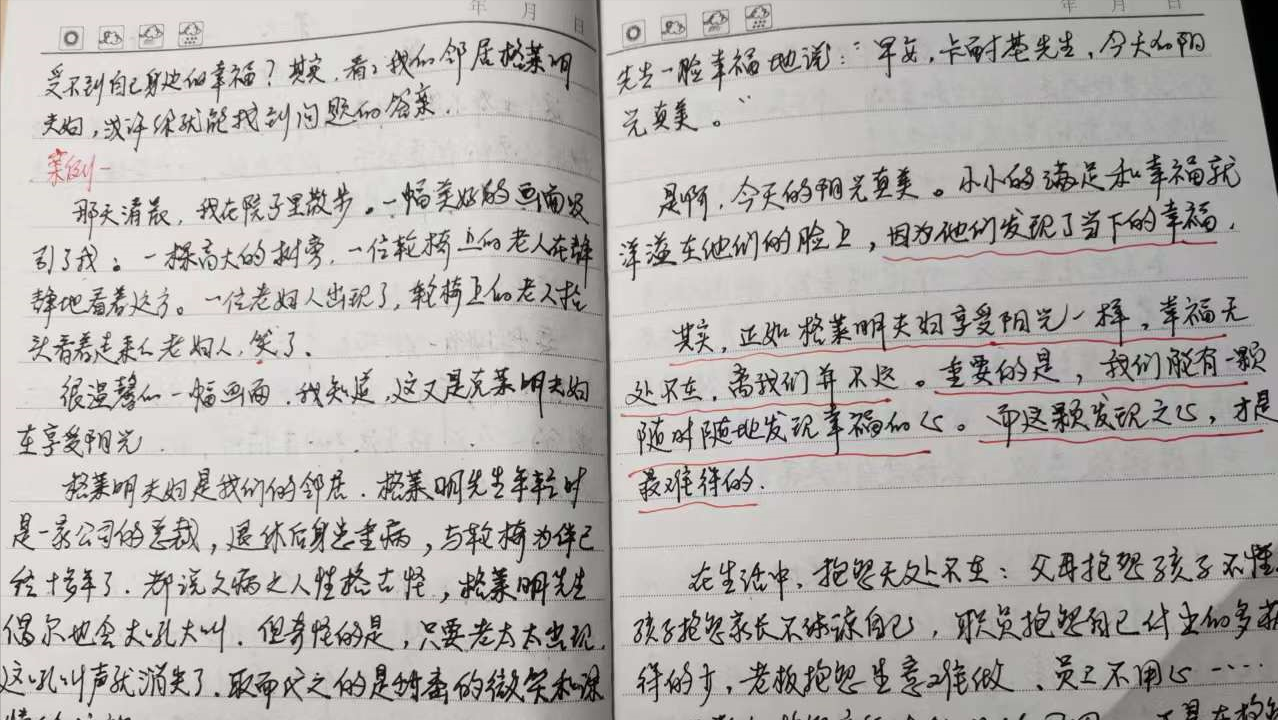 年 月 日
受不到自己身边的幸福？其实，看看我们的邻居格莱明
夫妇，或许你就能找到问题的答案.
案例一
那天清晨，我在院子里散步。一幅美好的画面吸
引了我：一棵高大的树旁，一位轮椅上的老人在静
静地看着远方。一位老妇人出现了，轮椅上的老人抬
头看着走来的老妇人，笑了、
很温馨的一幅画面，我知道，这又是克莱明夫妇
在享受阳光.
格莱明夫妇是我们的邻居．格莱明先生年轻时
是一家公司的总裁，退休后身患重病，与轮椅为伴已
经十多年了．都说久病之人性格古怪，格莱明先生
偶尔也会大吼大叫．但奇怪的是，只要老太太出现，
这吼叫声就消失了．取而代之的是的微笑和深
年 月 日
先生一脸幸福地说：“早安，卡耐基先生，今天的阳
光真美。”
是啊，今天的阳光真美。小小的满足和幸福就
洋溢在他们的脸上，因为他们发现了当下的幸福，
其实，正如格莱明夫妇享受阳光一样，幸福无
处不在，离我们并不远。重要的是，我们能有一颗
随时随地发现幸福的心。而这颗发现之心，才是
最难得的.
在生活中，抱怨无处不在：父母抱怨孩子不懂
孩子抱怨家长不体谅自己，职员抱怨自己付出的多获
得的少，老板抱怨生意难做、员工不用心……